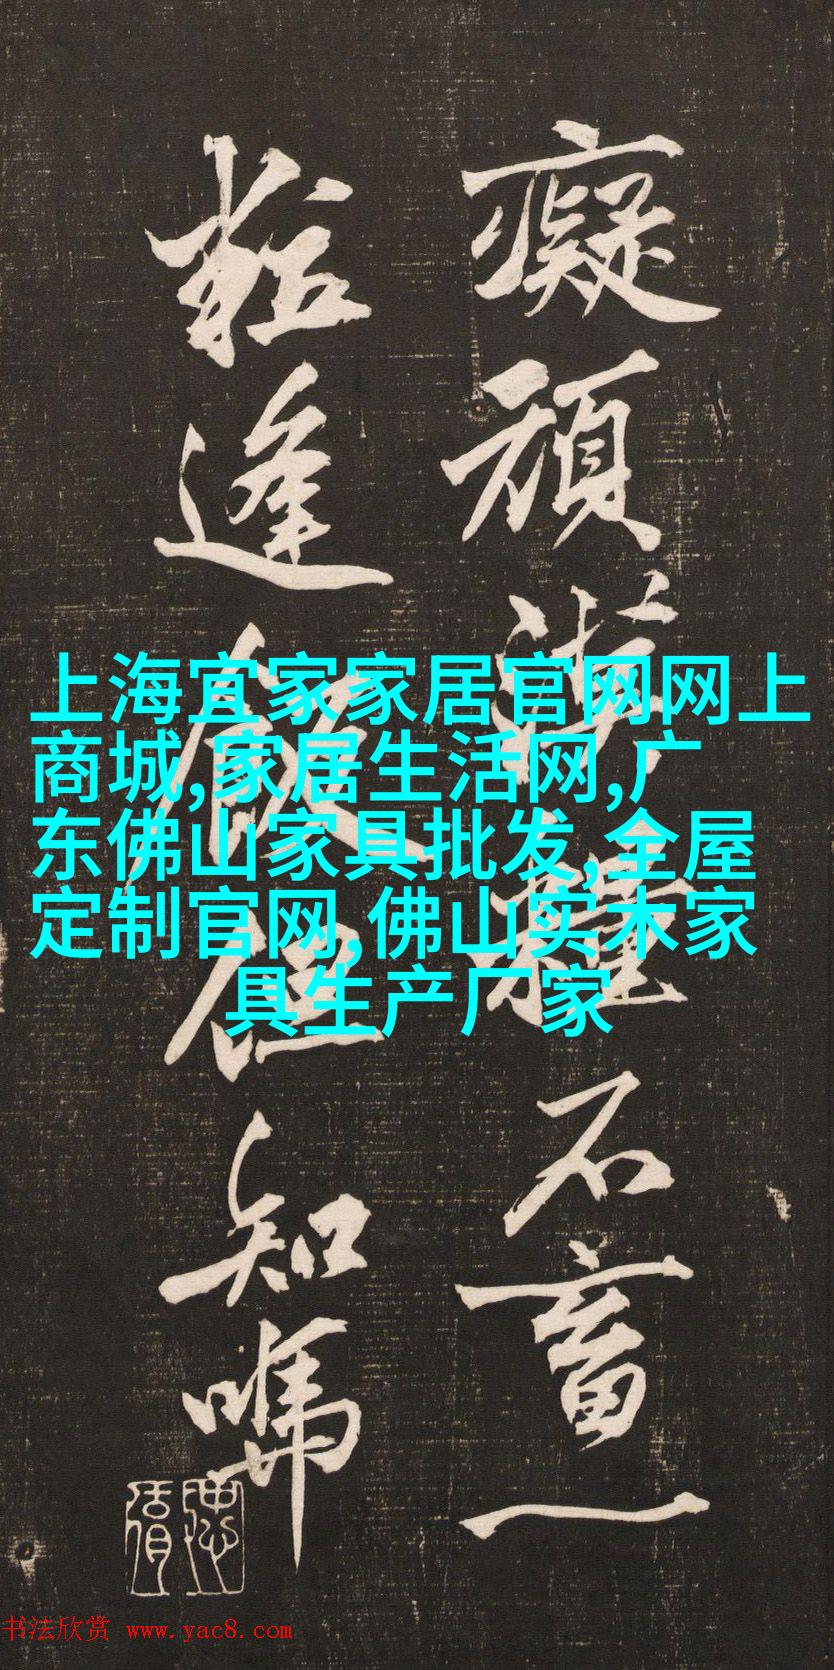 癡頑浙糧不畜一
粒逢飯但知嗎
上海宜家家居官网网上
商城,家居生活网,广
东佛山家具批发,全屋
定制官网,佛山实木家
具生产厂家
书法欣赏 www.yac8.com